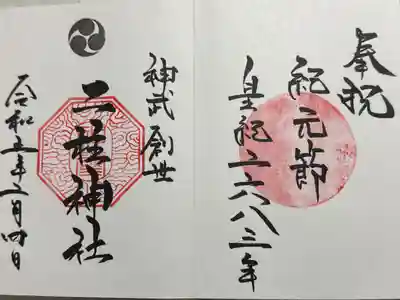 奉祝
紀元節
皇紀二六八三年
神武創世
二柱神社
令和五年二月四日